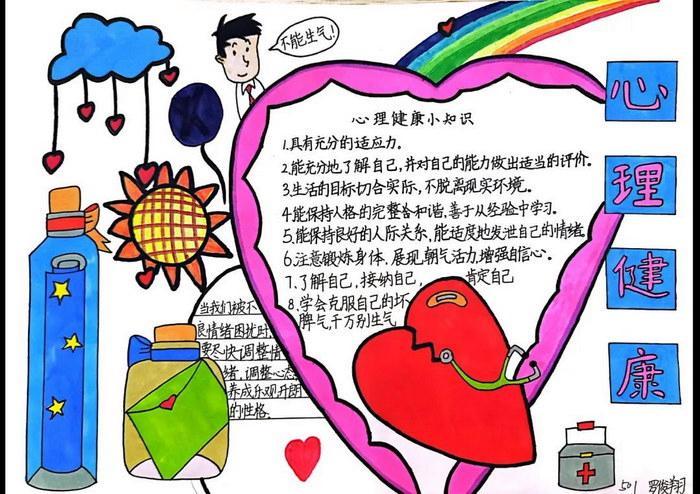 不能生气！
心理健康
心理健康小知识
1.具有充分的适应力。
2.能充分地了解自己，并对自己的能力做出适当的评价。
3.生活的目标切合实际，不脱离现实环境。
4.能保持人格的完整和谐，善于从经验中学习。
5.能保持良好的人际关系，能适度地发泄自己的情绪
6.注意锻炼身体，展现朝气活力，增强自信心。
7.了解自己，接纳自己， 肯定自己
8.学会克服自己的坏
脾气千万别生气
当我们被不
良情绪困扰时
要尽快调整情
绪，调整心态
养成乐观开朗
的性格。
K
501 罗俊翔